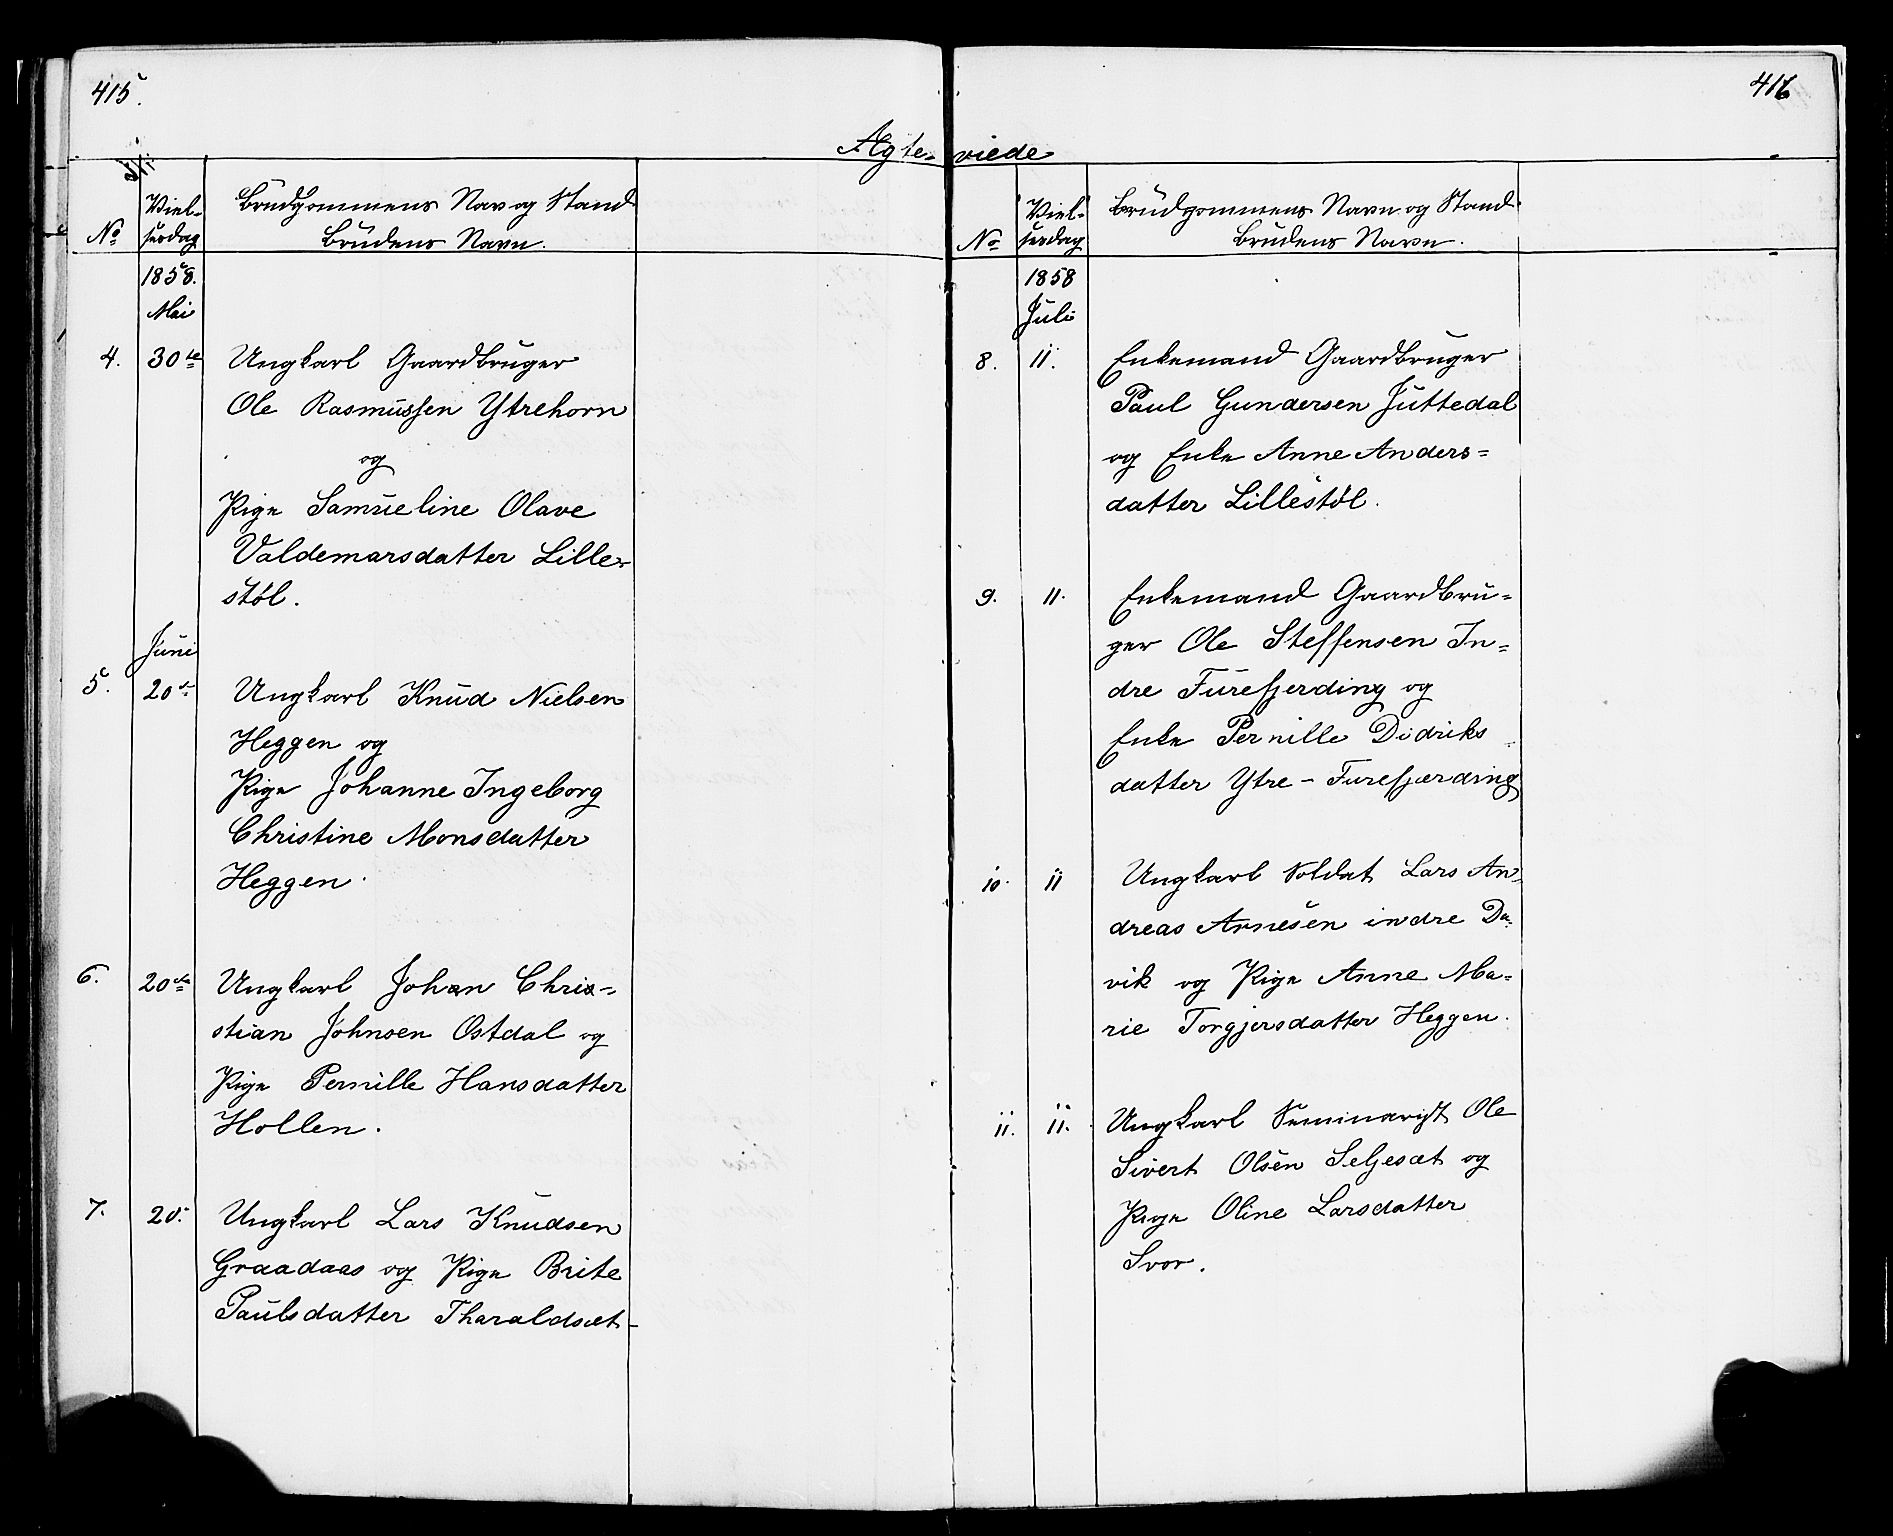 415.
Ægte-
No
Viel-
sesdag
Brudgommens Nav og Stand
Brudens Navn.
1858.
Mai
4. 30te Ungkarl Gaardbruger
Ole Rasmussen Ytrehorn
og
Pige Samueline Olave
Valdemarsdatter Lille-
støl.
Juni
5. 20de Ungkarl Knud Nielsen
Heggen og
Pige Johanne Ingeborg
Christine Monsdatter
Heggen.
6. 20de Ungkarl Johan Chri-
stian Johnsen Ostdal og
Pige Pernille Hansdatter
Hollen.
7. 20. Ungkarl Lars Knudsen
Graadaas og Pige Brite
Paulsdatter Tharaldsæt-
416
viede
No
Viel-
sesdag
Brudgommens Navn og Stand
Brudens Navn.
1858
Juli
8. 11. Enkemand Gaardbruger
Paul Gundersen Juttedal
og Enke Anne Anders-
datter Lillestøl.
9. 11. Enkemand Gaardbru-
ger Ole Steffensen In-
dre Furefjerding og
Enke Pernille Didriks-
datter Ytre-Furefjærding
10. 11 Ungkarl Soldat Lars An-
dreas Arnesen indre Da-
vik og Pige Anne Ma-
rie Torgjersdatter Heggen.
11. 11. Ungkarl Seminarist Ole
Sivert Olsen Seljesæt og
Pige Oline Larsdatter
Svor.